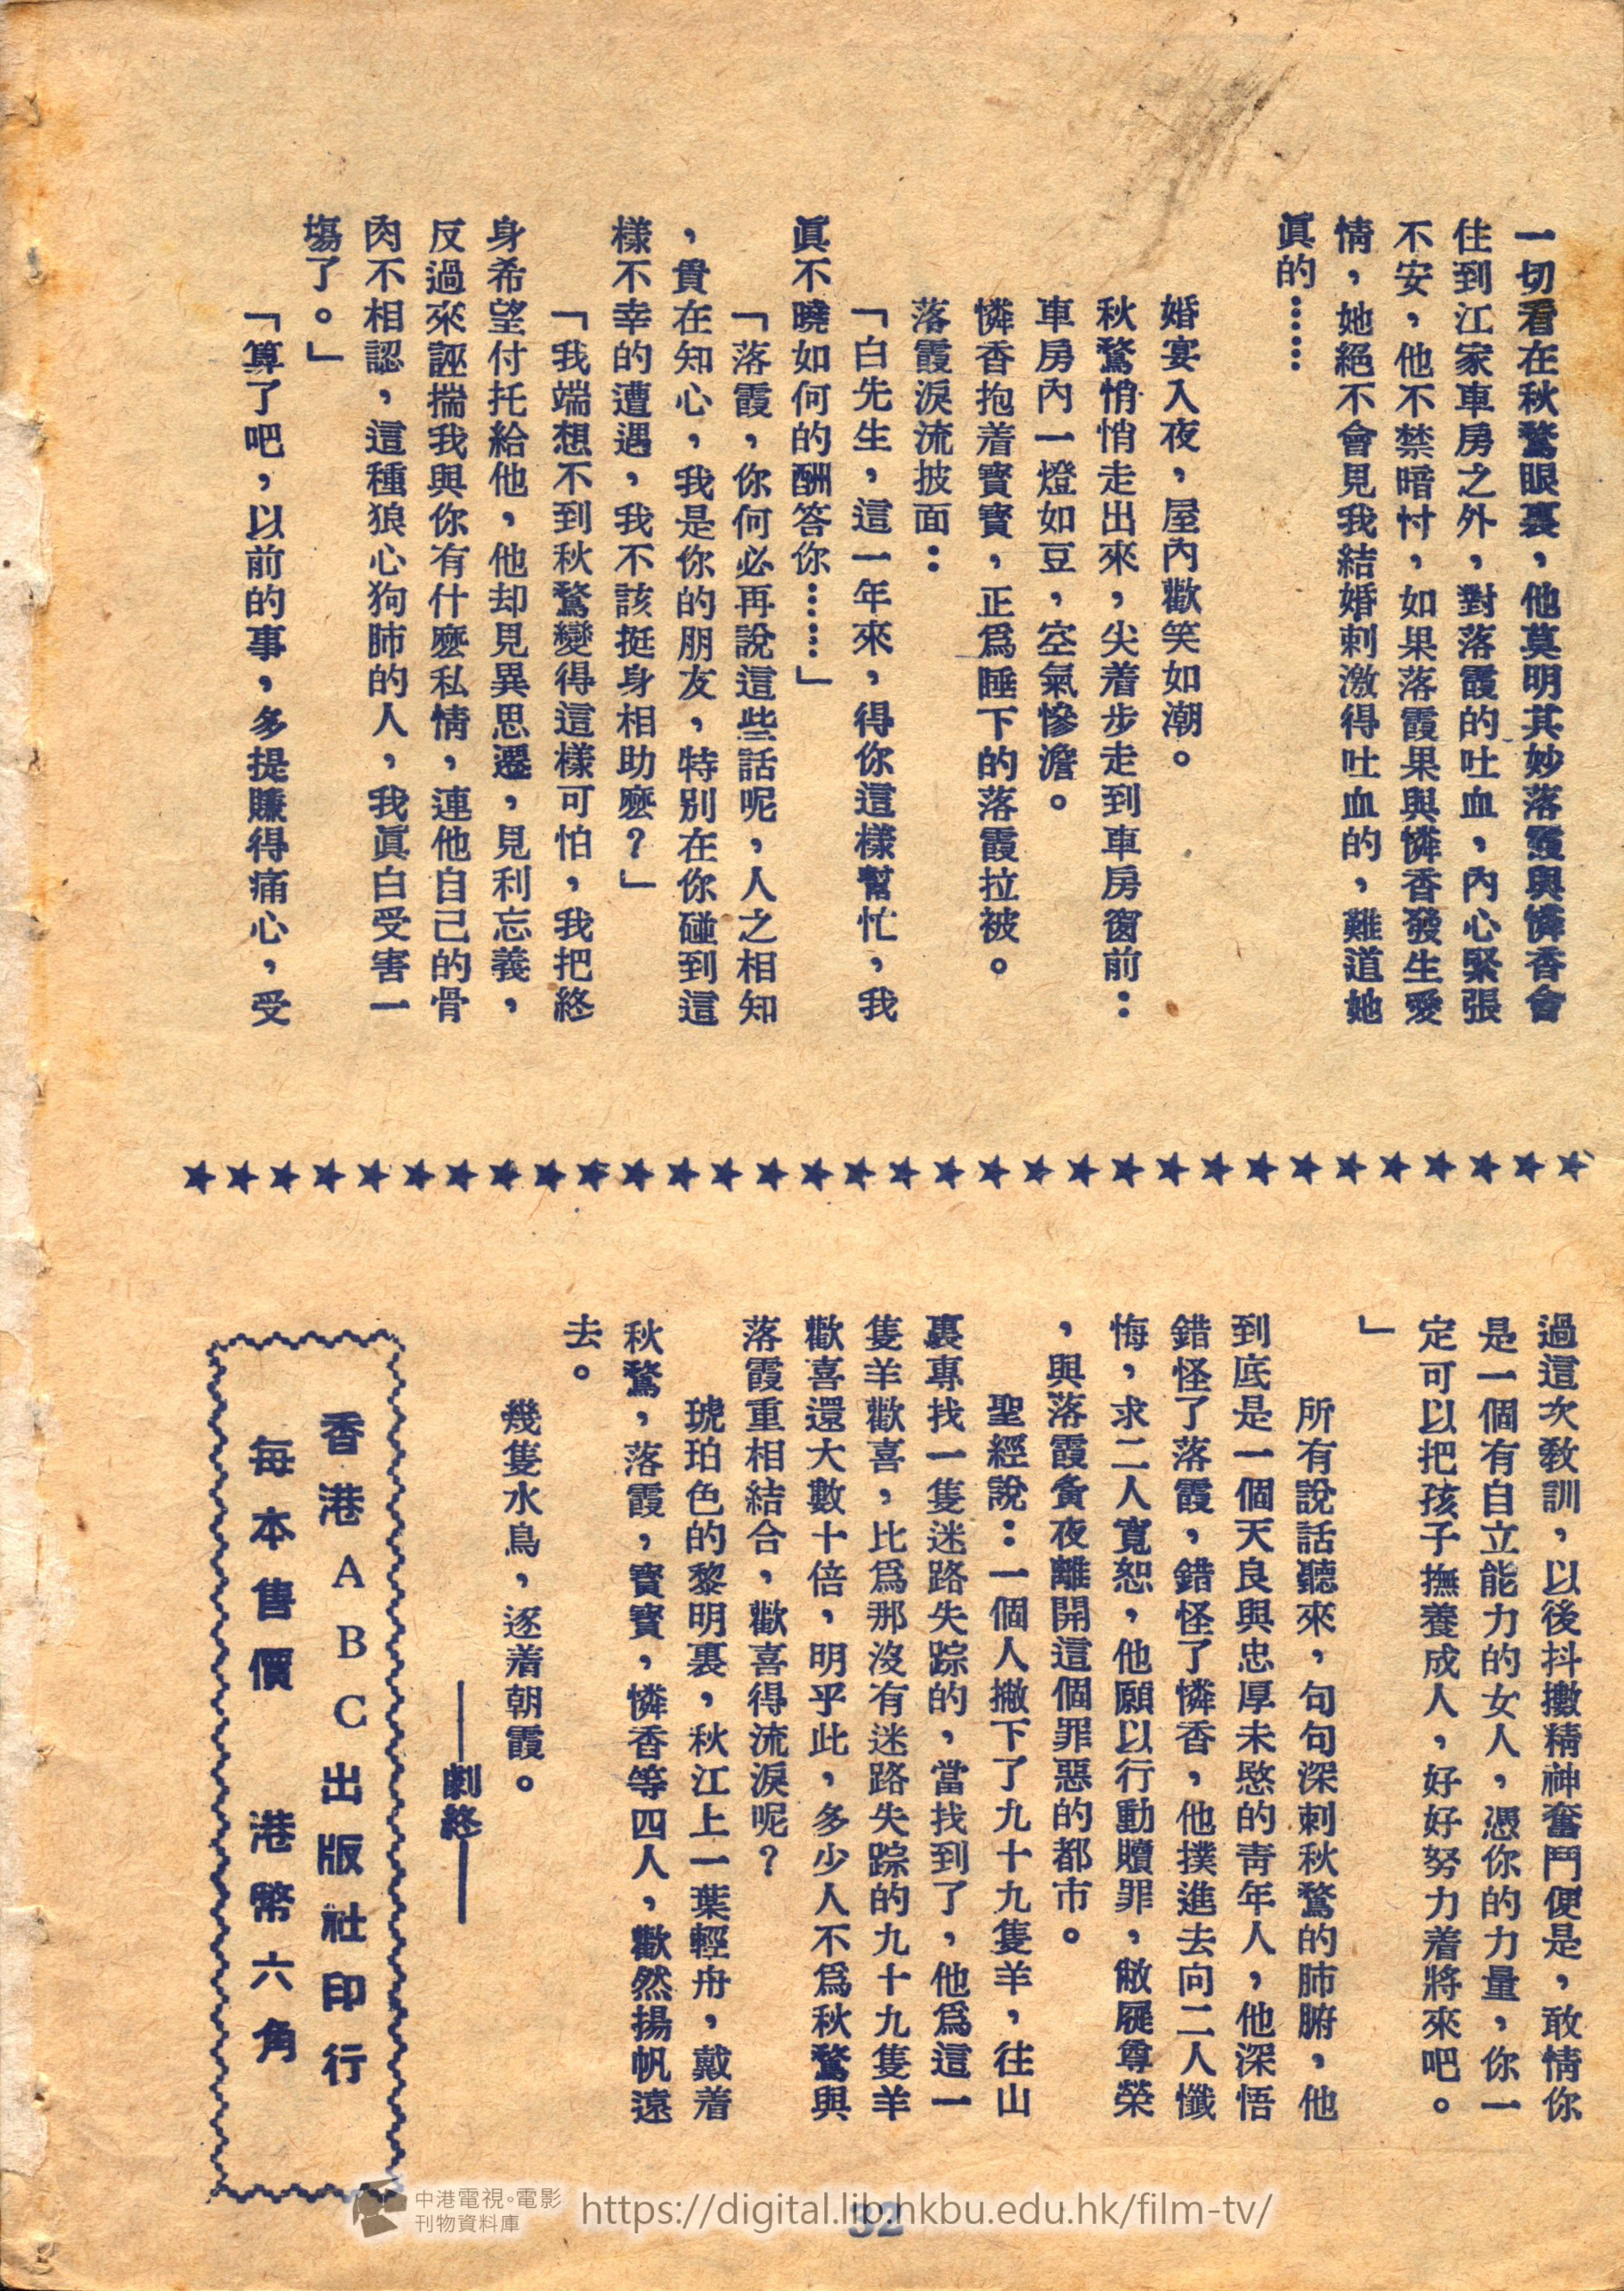 一切看在秋鶩眼裏，他莫明其妙落霞與憐香會
住到江家車房之外，對落霞的吐血，內心緊張
不安，他不禁暗忖，如果落霞果與憐香發生愛
情，她絕不會見我結婚刺激得吐血的，難道她
眞的……
婚宴入夜，屋內歡笑如潮。
秋鶩悄悄走出來，尖着步走到車房窗前：
車房內一燈如豆，空氣慘澹。
憐香抱着寶寶，正爲睡下的落霞拉被。
落霞淚流披面：
「白先生，這一年來，得你這樣幫忙，我
眞不曉如何的酬答你……」
「落霞，你何必再說這些話呢，人之相知
，貴在知心，我是你的朋友，特別在你碰到這
樣不幸的遭遇，我不該挺身相助麽？」
「我端想不到秋鶩變得這樣可怕，我把終
身希望付托給他，他却見異思遷，見利忘義，
反過來誣揣我與你有什麽私情，連他自己的骨
肉不相認，這種狼心狗肺的人，我眞白受害一
塲了。」
「算了吧，以前的事，多提賺得痛心，受
過這次教訓，以後抖擻精神奮鬥便是，敢情你
是一個有自立能力的女人，憑你的力量，你一
定可以把孩子撫養成人，好好努力着將來吧。
」
所有說話聽來，句句深刺秋鶩的肺腑，他
到底是一個天良與忠厚未愍的靑年人，他深悟
錯怪了落霞，錯怪了憐香，他撲進去向二人懺
悔，求二人寬恕，他願以行動贖罪，敝屣尊榮
，與落霞夤夜離開這個罪惡的都市。
聖經說：一個人撇下了九十九隻羊，往山
裏專找一隻迷路失踪的，當找到了，他爲這一
隻羊歡喜，比爲那沒有迷路失踪的九十九隻羊
歡喜還大數十倍，明乎此，多少人不爲秋鶩與
落霞重相結合，歡喜得流淚呢？
琥珀色的黎明裏，秋江上一葉輕舟，戴着
秋鶩，落霞，寶寶，憐香等四人，歡然揚帆遠
去。
幾隻水鳥，逐着朝霞。
——劇終——
香港ABC出版社印行
每本售價　港幣六角
32
中港電視。電影
刊物資料庫
https://digital.lib.hkbu.edu.hk/film-tv/